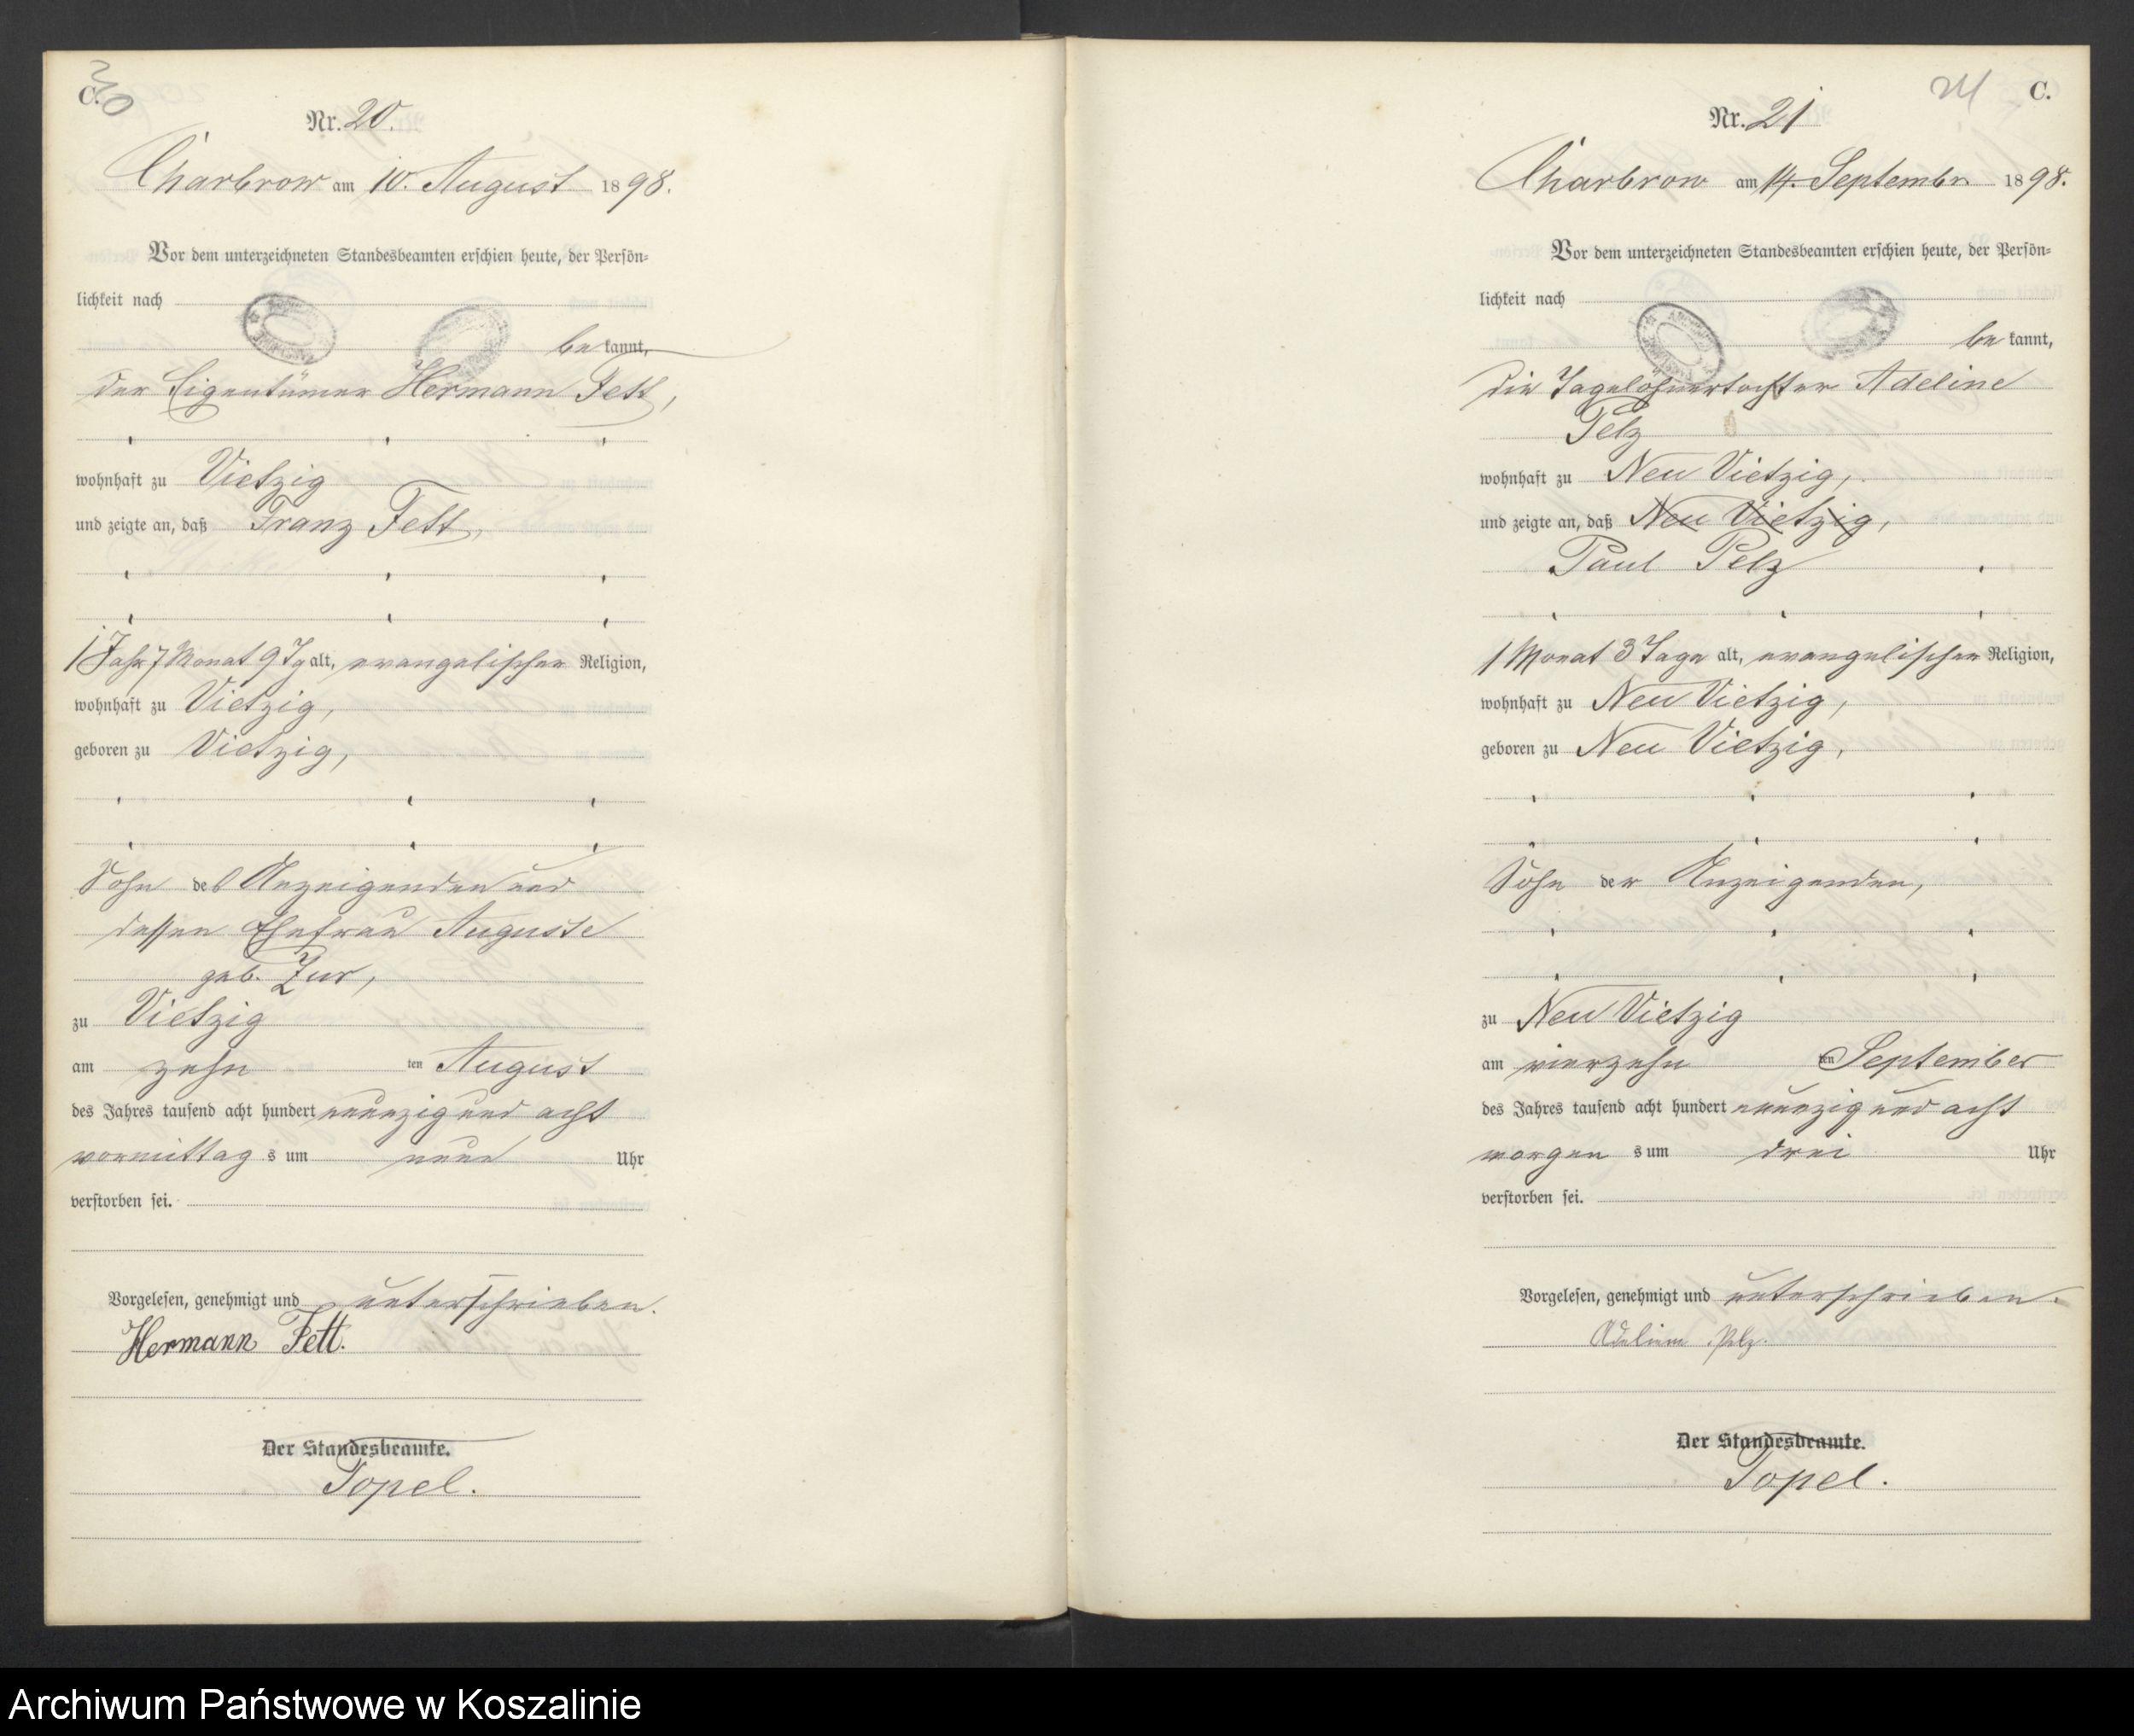 C.
20
Nr. 20.
Charbrow am 10. August 1898.
Vor dem unterzeichneten Standesbeamten erschien heute, der Persön-
lichkeit nach
be kannt,
der Eigentümer Hermann Fett,
wohnhaft zu Vietzig
und zeigte an, daß Franz Fett,
1 Jahr 7 Monat 9 Tg alt, evangelischer Religion,
wohnhaft zu Vietzig,
geboren zu Vietzig,
Sohn des Anzeigenden und
dessen Ehefrau Auguste
geb. Zur,
zu Vietzig
am zehn ten August
des Jahres tausend acht hundert neunzig und acht
vormittag s um neun Uhr
verstorben sei.
Vorgelesen, genehmigt und unterschrieben.
Hermann Fett.
Der Standesbeamte.
Topel.
21 C.
Nr. 21
Charbrow am 14. Septembr. 1898.
Vor dem unterzeichneten Standesbeamten erschien heute, der Persön-
lichkeit nach
be kannt,
die Tagelöhnertochter Adeline
Pelz
wohnhaft zu Neu Vietzig,
und zeigte an, daß Neu Vietzig,
Paul Pelz
1 Monat 3 Tage alt, evangelischer Religion,
wohnhaft zu Neu Vietzig,
geboren zu Neu Vietzig,
Sohn der Anzeigenden,
zu Neu Vietzig
am vierzehn ten September
des Jahres tausend acht hundert neunzig und acht
morgen s um drei Uhr
verstorben sei.
Vorgelesen, genehmigt und unterschrieben.
Adeline Pelz.
Der Standesbeamte.
Topel.
Archiwum Państwowe w Koszalinie